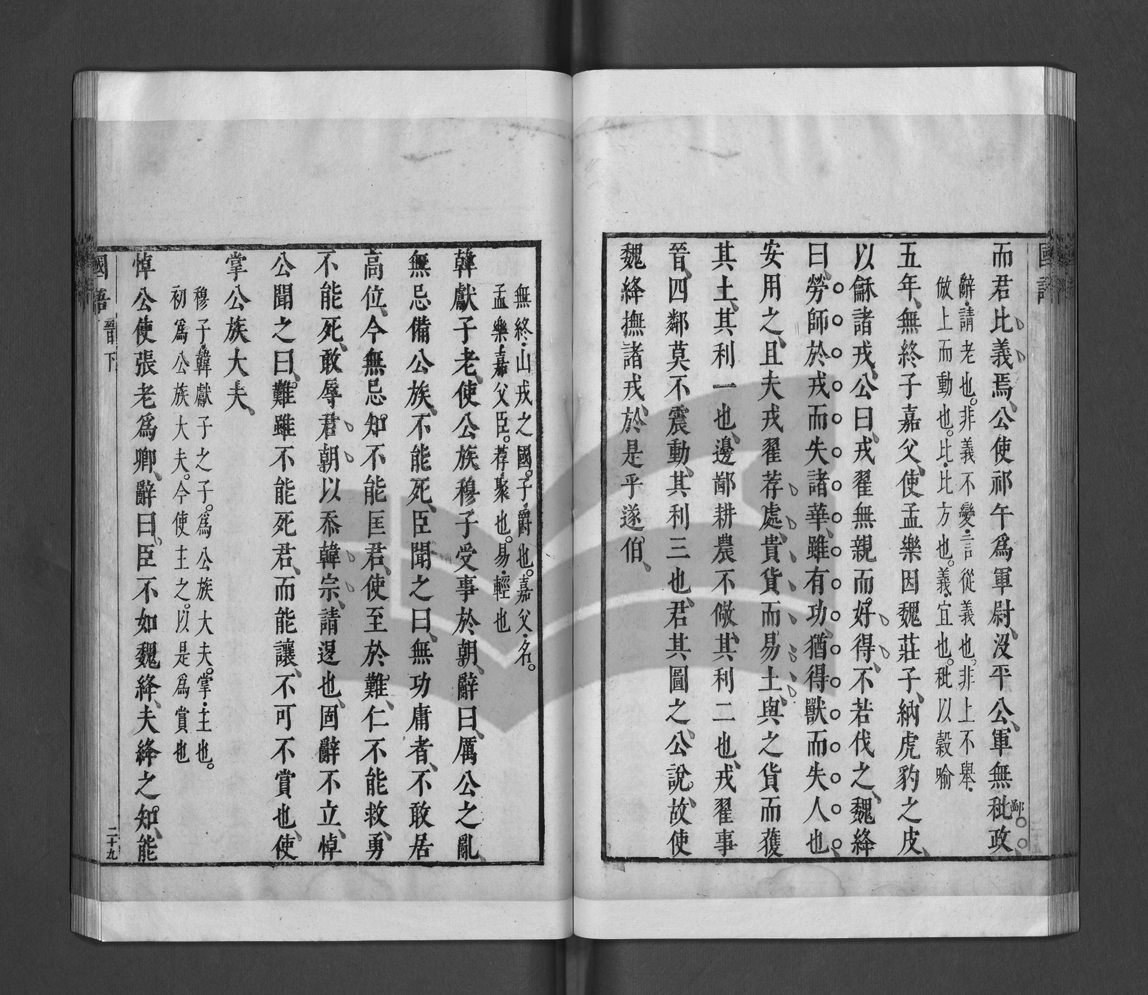 國語
而君比義焉、公使祁午爲軍尉、沒平公、軍無秕政、
鄙
辭、請老也。非義不變言從義也。非上不舉、
倣上而動也。比、比方也。義、宜也。秕以穀喻
五年、無終子嘉父、使孟樂因魏莊子、納虎豹之皮、
以龢諸戎、公曰、戎翟無親而好得、不若伐之、魏絳
曰、勞師於戎而失諸華、雖有功、猶得獸而失人也、
安用之、且夫戎翟荐處、貴貨而易土、與之貨而獲
其土、其利一也、邊鄙耕農不儆、其利二也、戎翟事
晉、四鄰莫不震動、其利三也、君其圖之、公說、故使
魏絳撫諸戎、於是乎遂伯、
無終、山戎之國。子、爵也。嘉父、名。
孟樂、嘉父臣。荐、聚也。易、輕也
韓獻子老、使公族穆子受事於朝、辭曰、厲公之亂、
無忌備公族、不能死、臣聞之曰、無功庸者、不敢居
高位、今無忌、知不能匡君、使至於難、仁不能救、勇
不能死、敢辱君朝、以忝韓宗、請退也、固辭不立、悼
公聞之曰、難雖不能死君、而能讓、不可不賞也、使
掌公族大夫、
穆子、韓獻子之子。爲公族大夫。掌、主也。
初爲公族大夫。今使主之。以是爲賞也
悼公使張老爲卿、辭曰、臣不如魏絳、夫絳之知、能
國語
晉下
二十九